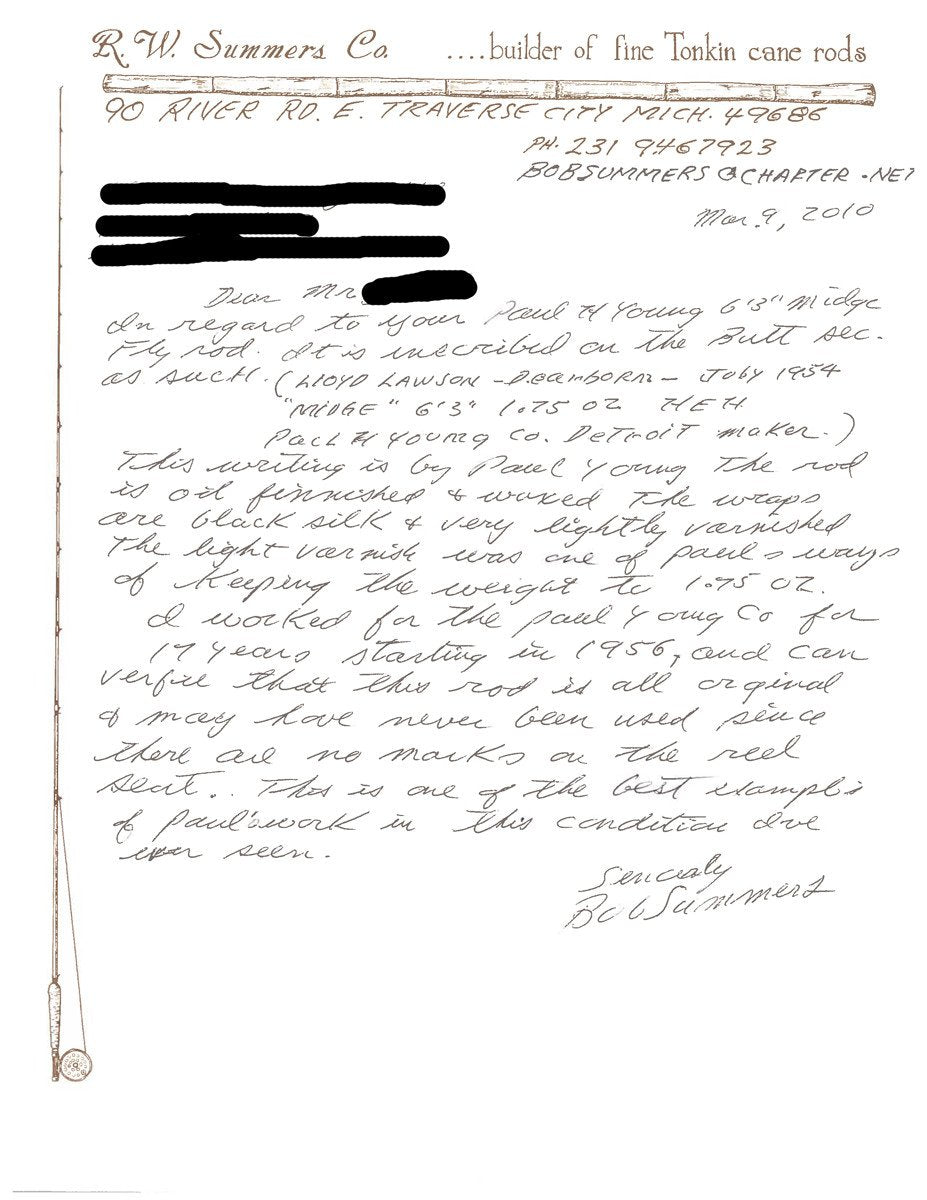 R.W. Summers Co. ....builder of fine Tonkin cane rods
90 RIVER RD. E. TRAVERSE CITY MICH. 49686
PH. 231 9467923
BOBSUMMERS @CHARTER.NET
Mar. 9, 2010
Dear Mr
In regard to your Paul H Young 6'3" Midge
Fly rod. It is inscribed on the Butt sec.
as such. (LLOYD LAWSON - Dearborn - July 1954
"MIDGE" 6'3" 1.75 oz HEH
Paul H Young Co. DeTroiT maker.)
This writing is by Paul Young The rod
is oil finnished & waxed The wraps
are black silk & very lightly varnished
The light varnish was one of Pauls ways
of Keeping the weight to 1.75 oz.
I worked for the Paul Young Co for
17 Years starting in 1956, and can
verfie that this rod is all orginal
& may have never been used since
there are no marks on the reel
seat.. This is one of the best exampls
of Paul's work in this condition Ive
ever seen.
Sincealy
Bob Summers